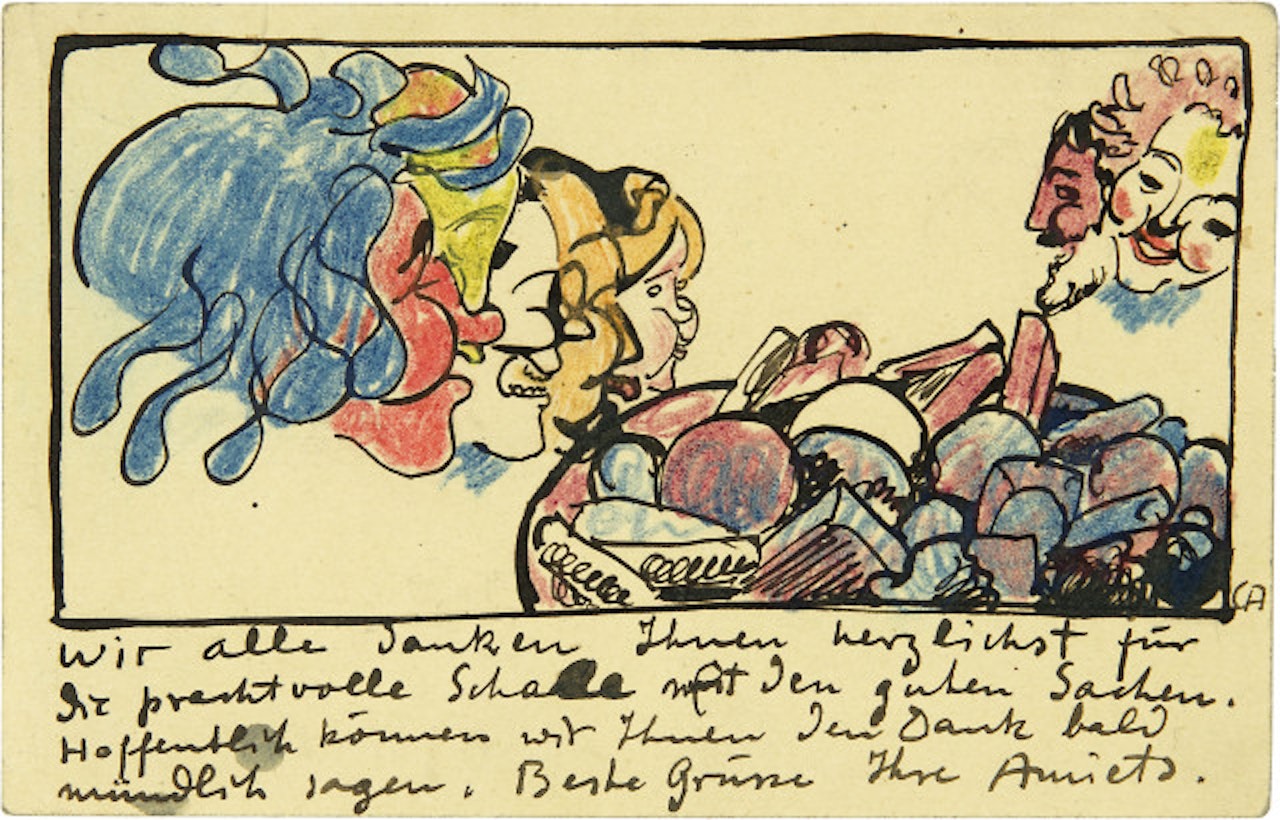 CA
Wir alle danken Ihnen herzlichst für
die prachtvolle Schale mit den guten Sachen.
Hoffentlich können wir Ihnen den Dank bald
mündlich sagen. Beste Grüsse Ihre Amiets.